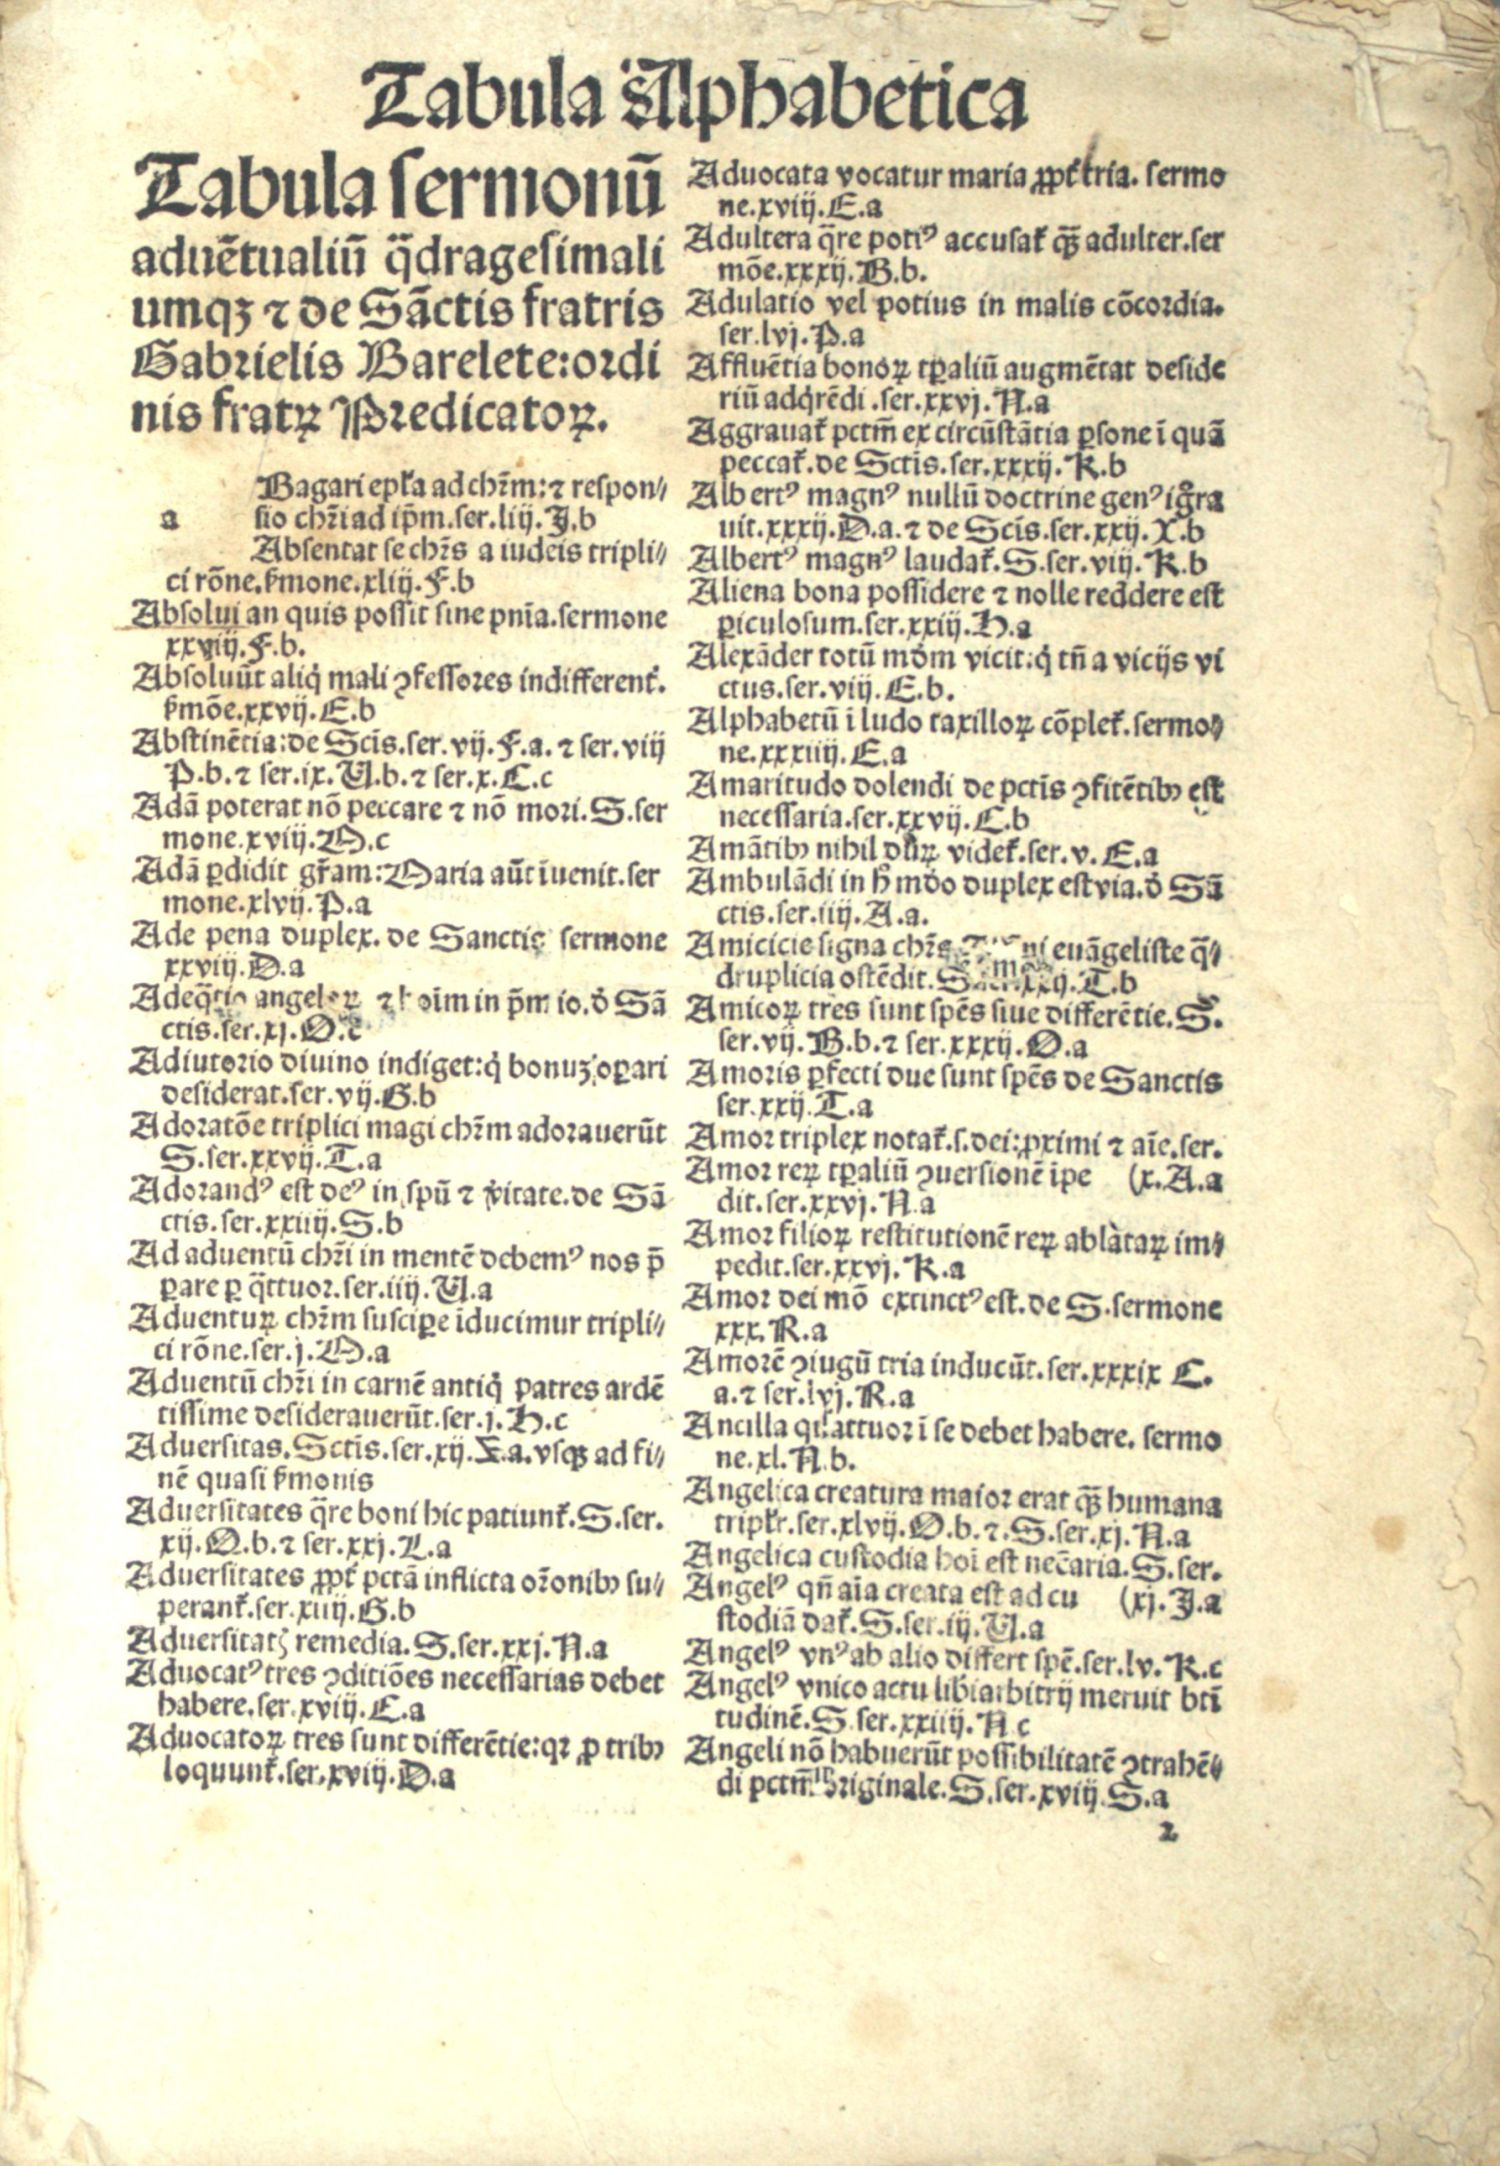 Tabula Alphabetica
Tabula sermonū
aduētualiū q̄dragesimali
umqȝ ⁊ de Sāctis fratris
Gabrielis Barelete:ordi
nis fratꝝ Predicatoꝝ.
Bagari epl'a ad chr̄m:⁊ respon⸗
a
sio chr̄i ad ip̄m.ser.liij.J.b
Absentat se chr̄s a iudeis tripli⸗
ci rōne.ẜmone.xliij.F.b
Absolui an quis possit sine pnīa.sermone
xxviij.F.b.
Absoluūt aliq̇ mali ꝯfessores indifferent᷑.
ẜmōe.xxvij.E.b
Abstinētia:de Scīs.ser.vij.F.a.⁊ ser.viij
P.b.⁊ ser.ix.U.b.⁊ ser.x.C.c
Adā poterat nō peccare ⁊ nō mori.S.ser
mone.xviij.O.c
Adā ꝑdidit gr̄am:Maria aūt īuenit.ser
mone.xlvij.P.a
Ade pena duplex.de Sanctis sermone
xxviij.D.a
angeloꝝ in io.ō Sā
ctis.ser.xj.O.c
Adiutorio diuino indiget:q̇ bonuȝ oꝑari
desiderat.ser.vij.G.b
Adoratōe triplici magi chr̄m adorauerūt
S.ser.xxvij.T.a
Adorandꝰ est deꝰ in spū ⁊ v̄itate.de Sā
ctis.ser.xxiiij.S.b
Ad aduentū chr̄i in mentē debemꝰ nos p̄
ꝑare ꝑ q̄ttuor.ser.iiij.U.a
Aduentuꝝ chr̄m susciꝑe īducimur tripli⸗
ci rōne.ser.j.O.a
Aduentū chr̄i in carnē antiq̇ patres ardē
tissime desiderauerūt.ser.j.H.c
Aduersitas.Sctīs.ser.xij.X.a.vsqȝ ad fi⸗
nē quasi ẜmonis
Aduersitates q̄re boni hic patiunt᷑.S.ser.
xij.O.b.⁊ ser.xxj.L.a
Aduersitates ꝓpt᷑ pctā inflicta or̄onibꝰ su⸗
perant᷑.ser.xiiij.G.b
Aduersitatꝭ remedia.S.ser.xxj.N.a
Aduocatꝰ tres ꝯditiōes necessarias debet
habere.ser.xviij.E.a
Aduocatoꝝ tres sunt differētie:qꝛ ꝓ tribꝰ
loquunt᷑.ser.xviij.D.a
Aduocata vocatur maria ꝓpt᷑ tria. sermo
ne.xviij.E.a
Adultera q̄re potiꝰ accusat᷑ qꝫ̄ adulter.ser
mōe.xxxij.B.b.
Adulatio vel potius in malis cōcordia.
ser.lvj.P.a
Affluētia bonoꝝ tꝑaliū augmētat deside
riū adq̇rēdi.ser.xxvj.N.a
Aggrauat᷑ pctm̄ ex circūstātia ꝑsone ī quā
peccat᷑.de Sctīs.ser.xxxij.K.b
Albertꝰ magnꝰ nullū doctrine genꝰ ig̊ra
uit.xxxij.D.a.⁊ de Scīs.ser.xxij.X.b
Albertꝰ magnꝰ laudat᷑.S.ser.viij.K.b
Aliena bona possidere ⁊ nolle reddere est
ꝑiculosum.ser.xxiij.H.a
Alexāder totū mōm vicit:q̇ tn̄ a vicijs vi
ctus.ser.viij.E.b.
Alphabetū ī ludo taxilloꝝ cōplet᷑.sermo⸗
ne.xxxiiij.E.a
Amaritudo dolendi de pctīs ꝯfitētibꝰ est
necessaria.ser.xxvij.C.b
Amātibꝰ nihil duꝝ videt᷑.ser.v.E.a
Ambulādi in h̄ mōo duplex est via.ō Sā
ctis.ser.iiij.A.a.
Amicicie signa chr̄s euāgeliste q̄⸗
druplicia ostēdit. T.b
Amicoꝝ tres sunt spēs siue differētie.S.
ser.vij.B.b.⁊ ser.xxxij.O.a
Amoris ꝑfecti due sunt spēs de Sanctis
ser.xxij.T.a
Amor triplex notat᷑.s.dei:ꝓximi ⁊ aīe.ser.
Amor reꝝ tꝑaliū ꝯuersionē īpe (x.A.a
dit.ser.xxvj.N.a
Amor filioꝝ restitutionē reꝝ ablataꝝ im⸗
pedit.ser.xxvj.K.a
Amor dei mō extinctꝰ est.de S.sermone
xxx.R.a
Amorē ꝯiugū tria inducūt.ser.xxxix C.
a.⁊ ser.lvj.R.a
Ancilla quattuor ī se debet habere. sermo
ne.xl.N.b.
Angelica creatura maior erat qꝫ̄ humana
tripl'r.ser.xlvij.O.b.⁊.S.ser.xj.N.a
Angelica custodia hoī est nec̄aria.S.ser.
Angelꝰ qn̄ aīa creata est ad cu (xj.J.a
stodiā dat᷑.S.ser.iij.U.a
Angelꝰ vnꝰ ab alio differt spē.ser.lv.K.c
Angelꝰ vnico actu libi arbitrij meruit btī
tudinē.S.ser.xxiiij.N c
Angeli nō habuerūt possibilitatē ꝯtrahē⸗
di pctm̄ originale.S.ser.xviij.S.a
2